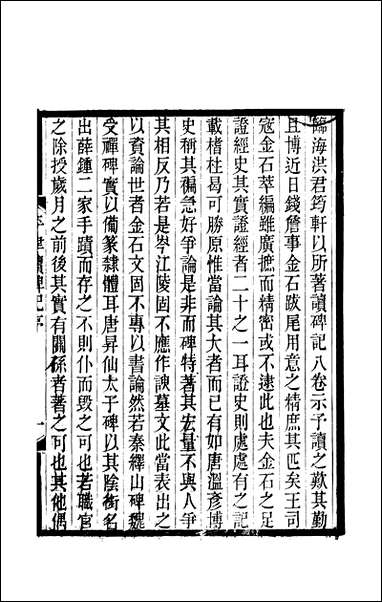 臨海洪君筠軒以所著讀碑記八卷示予讀之歎其勤
且博近日錢詹事金石跋尾用意之精庶其匹矣王司
寇金石萃編雖廣摭而精密或不逮此也夫金石之足
證經史其實證經者二十之一耳證史則處處有之記
載楮柱曷可勝原惟當論其大者而已有如唐溫彥博
史稱其褊急好爭論是非而碑特著其宏量不與人爭
其相反乃若是岑江陵固不應作諛墓文此當表出之
以資論世者金石文固不專以書論然若秦繹山碑魏
受禪碑實以備篆隸體耳唐昇仙太子碑以其陰銜名
出薛鍾二家手蹟而存之不則仆而毀之可也若職官
之除授歲月之前後其實有關係者著之可也其他偶
平津讀碑記序
一